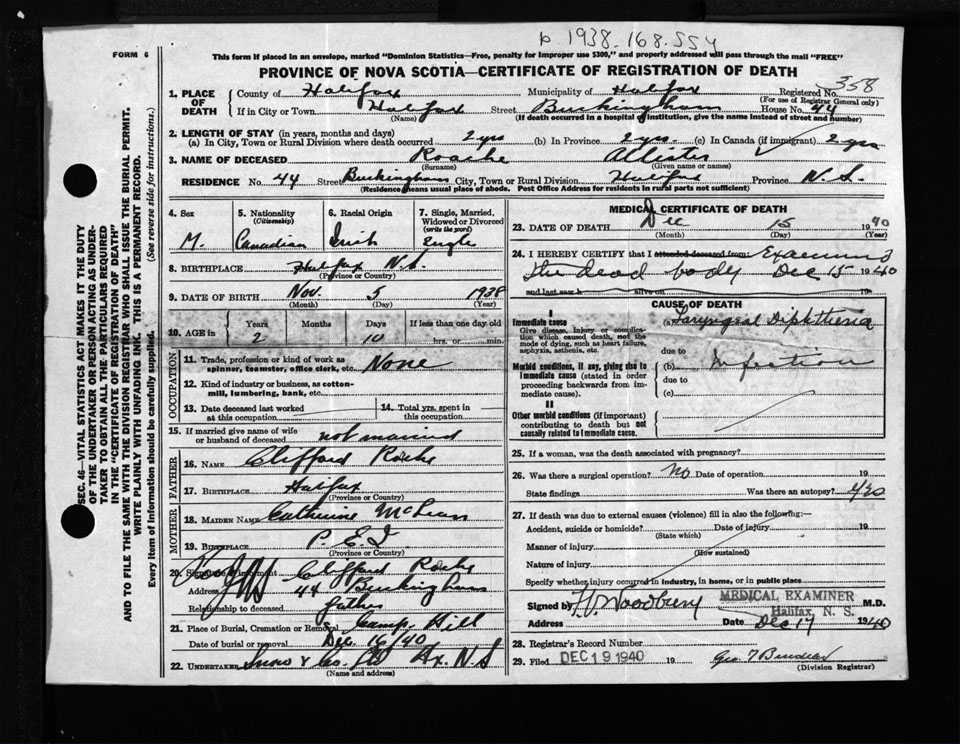 b 1938.168.554
FORM 6
This form if placed in an envelope, marked "Dominion Statistics—Free, penalty for improper use $300," and properly addressed will pass through the mail "FREE"
PROVINCE OF NOVA SCOTIA—CERTIFICATE OF REGISTRATION OF DEATH
358
1. PLACE OF DEATH County of Halifax Municipality of Halifax Registered No.
(For use of Registrar General only)
If in City or Town Halifax Street Buckingham House No. 44
(Name) (If death occurred in a hospital or institution, give the name instead of street and number)
2. LENGTH OF STAY (in years, months and days)
(a) In City, Town or Rural Division where death occurred 2 yrs (b) In Province 2 yrs (c) In Canada (if immigrant) 2 yrs
3. NAME OF DECEASED Roache Allister
(Surname) (Given name or names)
RESIDENCE No. 44 Street Buckingham City, Town or Rural Division Halifax Province N.S.
(Residence means usual place of abode. Post Office Address for residents in rural parts not sufficient)
4. Sex 5. Nationality (Citizenship) 6. Racial Origin 7. Single, Married, Widowed or Divorced (write the word)
M. Canadian Irish Single
8. BIRTHPLACE Halifax N.S.
(Province or Country)
9. DATE OF BIRTH Nov. 5 1938
(Month) (Day) (Year)
10. AGE in Years Months Days If less than one day old
2 10 hrs. or min.
OCCUPATION
11. Trade, profession or kind of work as spinner, teamster, office clerk, etc. None
12. Kind of industry or business, as cotton-mill, lumbering, bank, etc.
13. Date deceased last worked at this occupation
14. Total yrs. spent in this occupation
15. If married give name of wife or husband of deceased not married
FATHER
16. NAME Clifford Roche
17. BIRTHPLACE Halifax
(Province or Country)
MOTHER
18. MAIDEN NAME Catherine McLean
19. BIRTHPLACE P.E.I.
(Province or Country)
20. Signature of informant Clifford Roche
Address 44 Buckingham
Relationship to deceased father
21. Place of Burial, Cremation or Removal Camp Hill
Date of burial or removal Dec. 16/40
22. UNDERTAKER Snow & Co. Ltd Hx. N.S
(Name and address)
MEDICAL CERTIFICATE OF DEATH
23. DATE OF DEATH Dec 15 1940
(Month) (Day) (Year)
24. I HEREBY CERTIFY that I attended deceased from: Examined
the dead body Dec 15 1940
and last saw h alive on 19
CAUSE OF DEATH
I
Immediate cause (a) Laryngeal Diphtheria
Give disease, injury or complication which caused death, not the mode of dying, such as heart failure, asphyxia, asthenia, etc.
due to
Morbid conditions, if any, giving rise to immediate cause (stated in order proceeding backwards from immediate cause).
(b) Infection
due to
(c)
II
Other morbid conditions (if important) contributing to death but not causally related to immediate cause.
25. If a woman, was the death associated with pregnancy?
26. Was there a surgical operation? No Date of operation 19
State findings Was there an autopsy? Yes
27. If death was due to external causes (violence) fill in also the following:—
Accident, suicide or homicide? Date of injury 19
(State which)
Manner of injury
(How sustained)
Nature of injury
Specify whether injury occurred in industry, in home, or in public place
Signed by H. Woodbury M.D.
MEDICAL EXAMINER
Halifax, N. S.
Address Date Dec 17 1940
28. Registrar's Record Number
29. Filed DEC 19 1940 19
(Division Registrar)
AND TO FILE THE SAME WITH THE DIVISION REGISTRAR WHO SHALL ISSUE THE BURIAL PERMIT.
WRITE PLAINLY WITH UNFADING INK. THIS IS A PERMANENT RECORD.
Every item of information should be carefully supplied. (See reverse side for instructions.)
SEC. 46—VITAL STATISTICS ACT MAKES IT THE DUTY
OF THE UNDERTAKER OR PERSON ACTING AS UNDERTAKER
TO OBTAIN ALL THE PARTICULARS REQUIRED
IN THE "CERTIFICATE OF REGISTRATION OF DEATH"